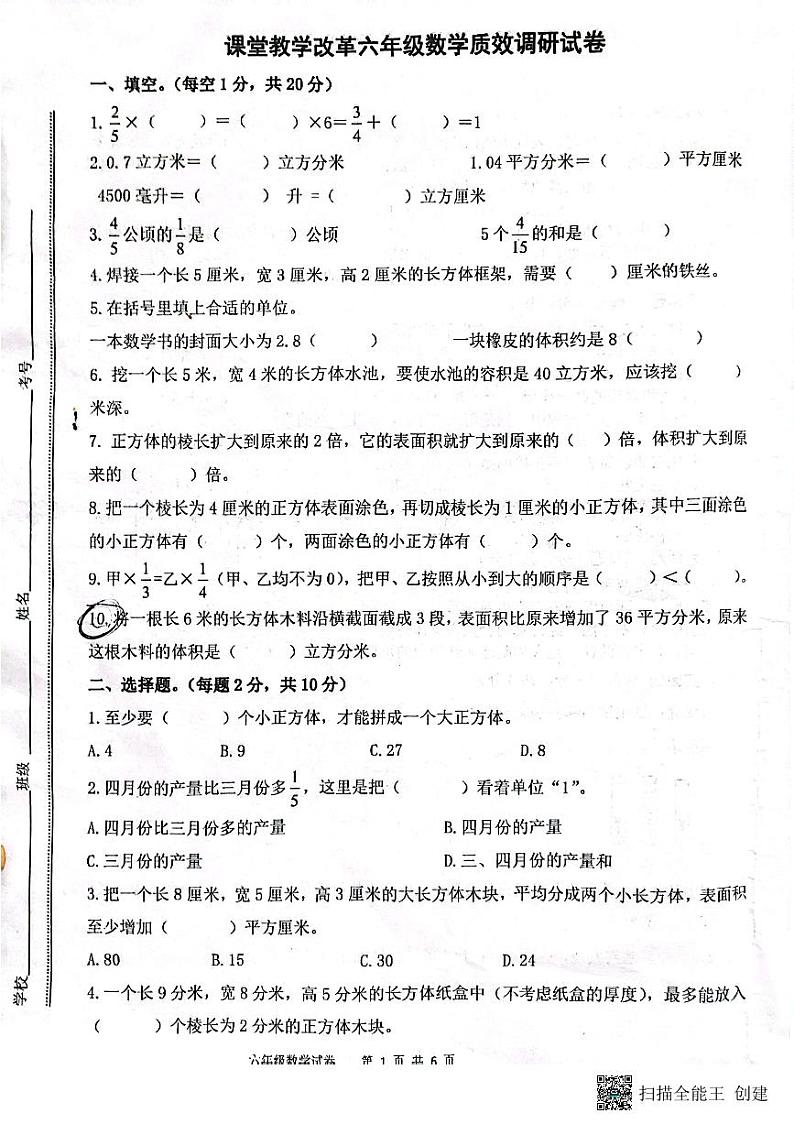 课堂教学改革六年级数学质效调研试卷
一、填空。（每空1分，共20分）
1. 2/5×（  ）=（  ）×6=3/4+（  ）=1
2.0.7立方米=（  ）立方分米  1.04平方分米=（  ）平方厘米
4500毫升=（  ）升 =（  ）立方厘米
3. 4/5公顷的1/8是（  ）公顷  5个4/15的和是（  ）
4.焊接一个长5厘米，宽3厘米，高2厘米的长方体框架，需要（  ）厘米的铁丝。
5.在括号里填上合适的单位。
一本数学书的封面大小为2.8（  ）  一块橡皮的体积约是8（  ）
6. 挖一个长5米，宽4米的长方体水池，要使水池的容积是40立方米，应该挖（  ）
米深。
7. 正方体的棱长扩大到原来的2倍，它的表面积就扩大到原来的（  ）倍，体积扩大到原
来的（  ）倍。
8.把一个棱长为4厘米的正方体表面涂色，再切成棱长为1厘米的小正方体，其中三面涂色
的小正方体有（  ）个，两面涂色的小正方体有（  ）个。
9.甲×1/3=乙×1/4（甲、乙均不为0），把甲、乙按照从小到大的顺序是（  ）<（  ）。
10.将一根长6米的长方体木料沿横截面截成3段，表面积比原来增加了36平方分米，原来
这根木料的体积是（  ）立方分米。
二、选择题。（每题2分，共10分）
1.至少要（  ）个小正方体，才能拼成一个大正方体。
A.4  B.9  C.27  D.8
2.四月份的产量比三月份多1/5，这里是把（  ）看着单位“1”。
A.四月份比三月份多的产量  B.四月份的产量
C.三月份的产量  D.三、四月份的产量和
3.把一个长8厘米，宽5厘米，高3厘米的大长方体木块，平均分成两个小长方体，表面积
至少增加（  ）平方厘米。
A.80  B.15  C.30  D.24
4.一个长9分米，宽8分米，高5分米的长方体纸盒中（不考虑纸盒的厚度），最多能放入
（  ）个棱长为2分米的正方体木块。
六年级数学试卷  第1页共6页
学校 班级 姓名 考号
扫描全能王 创建